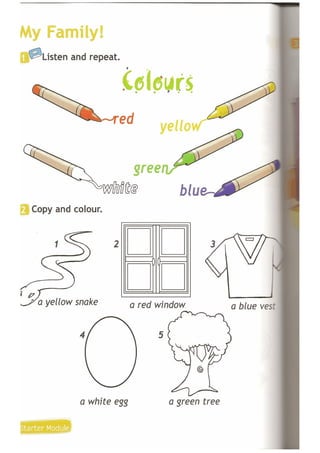 My Family!
1 Listen and repeat.
Colours
red
yellow
green
white
blue
2 Copy and colour.
1
2
3
a yellow snake
a red window
a blue vest
4
5
a white egg
a green tree
Starter Module